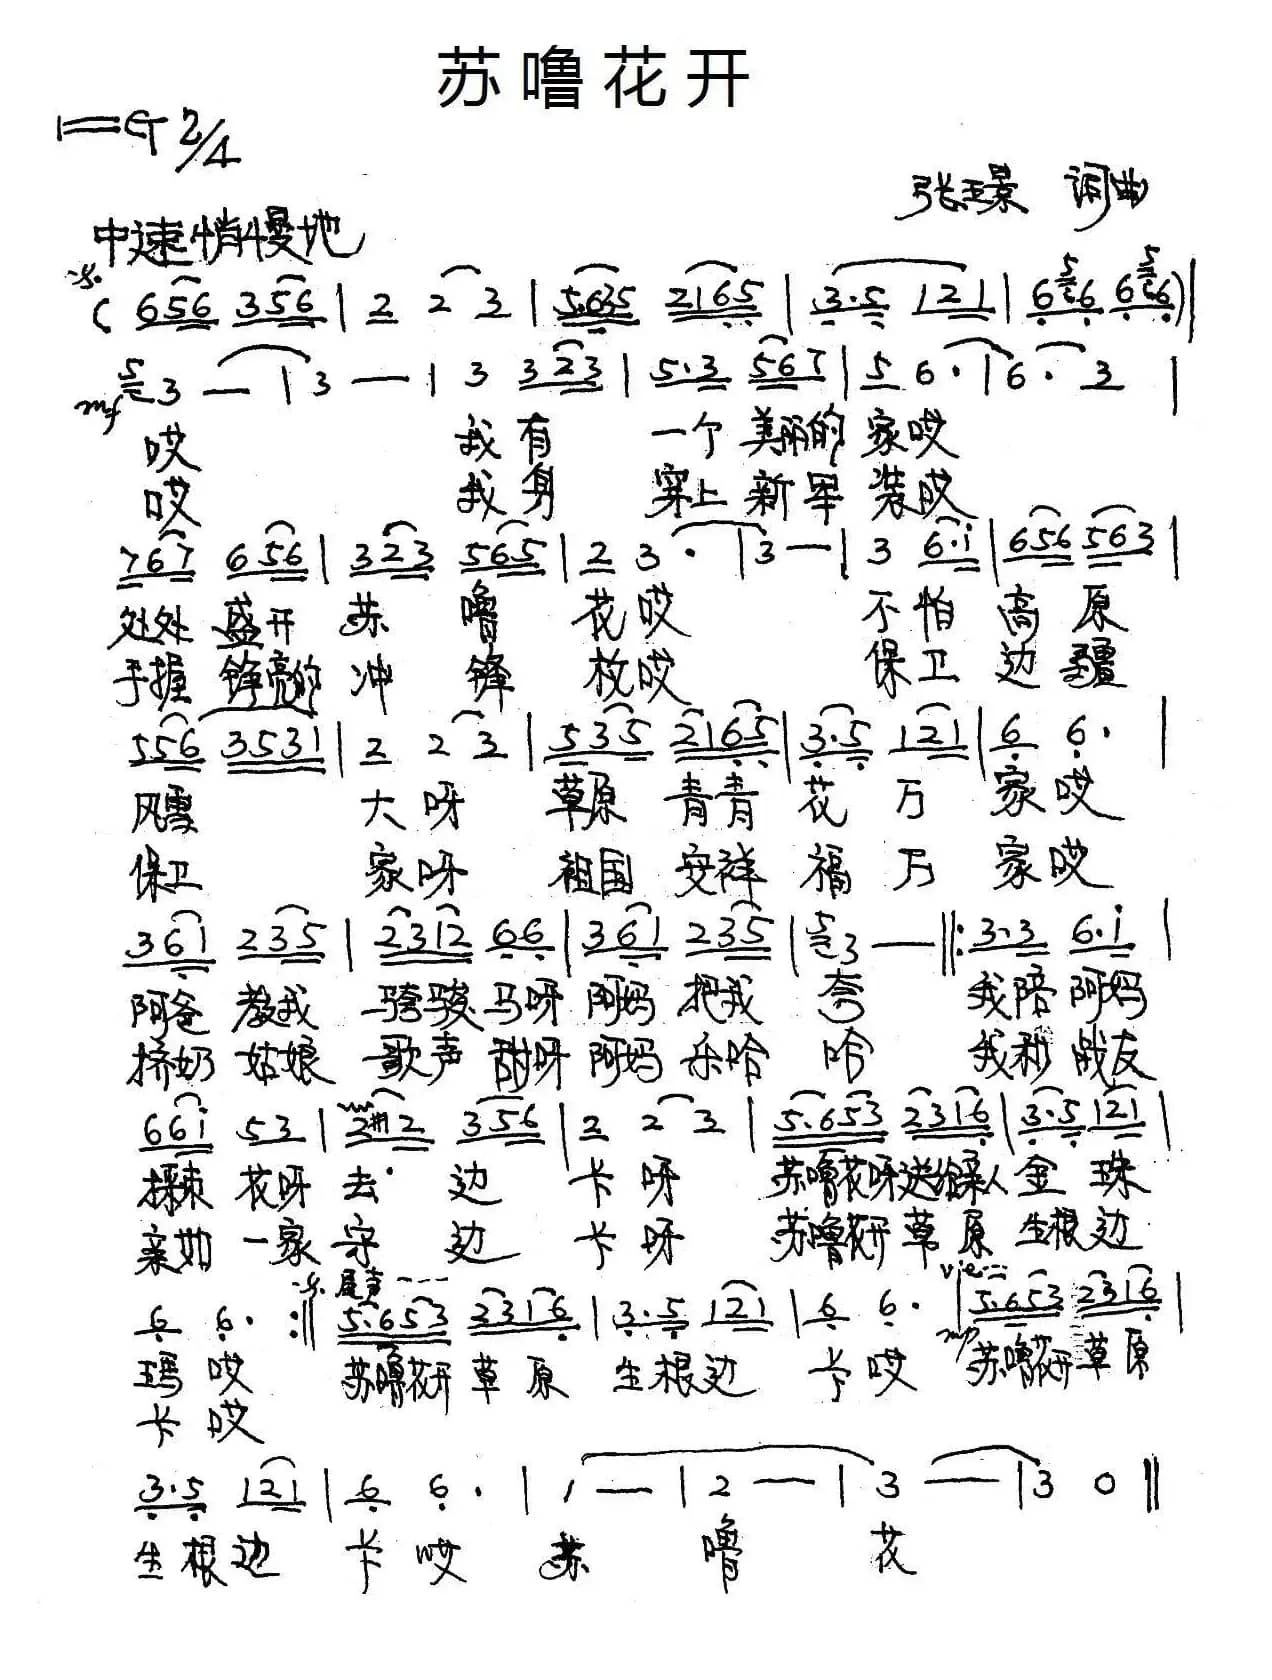 苏噜花开
1=G 2/4
张玉景 词曲
中速悄慢地
( 656 356 | 2 2 3 | 5.635 2165 | 3.5 121 | 6 56 6 6 56 6 ) |
5 3 — | 3 — | 3 323 | 5.3 567 | 5 6. | 6. 3 |
mf
哎 我有 一个 美丽的 家哎
哎 我身 穿上 新军 装哎
767 656 | 323 565 | 2 3. | 3 — | 3 6.i | 656 563 |
处处 盛开 苏 噜 花哎 不怕 高原
手握 铮亮的 冲 锋 枚哎 保卫 边疆
556 3531 | 2 2 3 | 535 2165 | 3.5 121 | 6 6. |
风雪 大呀 草原 青青 花 万 家哎
保卫 家呀 祖国 安祥 福 万 家哎
361 235 | 2312 66 | 361 235 | 5 3 — |: 3.3 6.i |
阿爸 教我 骑骏 马呀 阿妈 把我 夸 我陪 阿妈
挤奶 姑娘 歌声 甜呀 阿妈 乐哈 哈 我和 战友
66i 53 | 2#2 356 | 2 2 3 | 5.653 2316 | 3.5 121 |
採束 花呀 去 边 卡呀 苏噜花呀送给亲人 金 珠
亲如 一家 守 边 卡呀 苏噜花开 草 原 生根边
尾声 ----
6 6. :|| 5.653 2316 | 3.5 121 | 6 6. | 5.653 2316 |
mp
玛哎 苏噜花开 草 原 生根边 卡哎 苏噜花开 草原
卡哎
3.5 121 | 6 6. | 1 — | 2 — | 3 — | 3 0 ||
生根边 卡哎 苏 噜 花